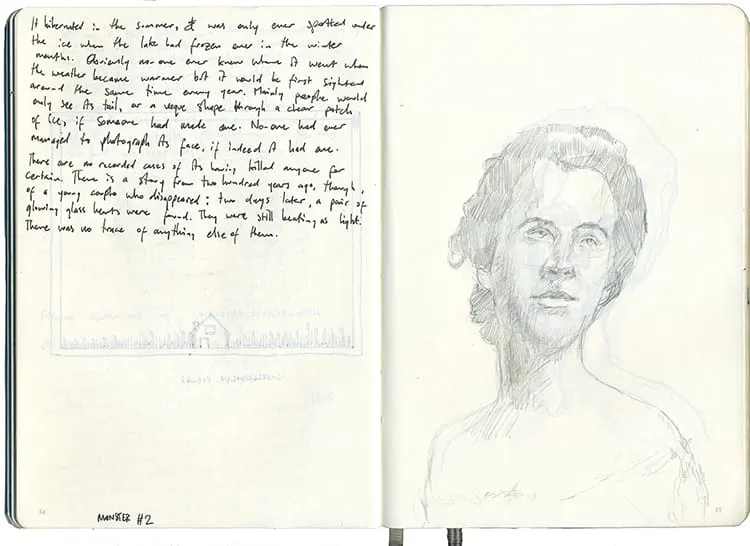 It hibernated in the summer, & was only ever spotted under
the ice when the lake had frozen over in the winter
months. Obviously no-one ever knew where it went when
the weather became warmer but it would be first sighted
around the same time every year. Mainly people would
only see its tail, or a vague shape through a clear patch
of ice, if someone had made one. No-one had ever
managed to photograph its face, if indeed it had one.
There are no recorded cases of its having killed anyone for
certain. There is a story from two hundred years ago, though,
of a young couple who disappeared; two days later, a pair of
glowing glass hearts were found. They were still beating as light.
There was no trace of anything else of them.
MONSTER #2
54
55